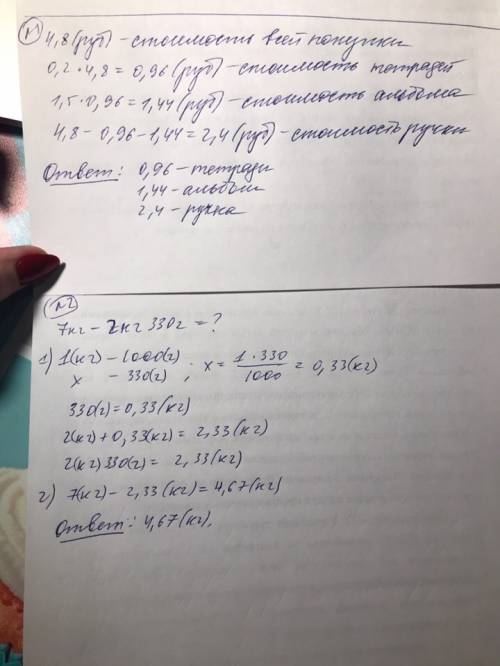 N1
4,8 (руб) - стоимость всей покупки
0,2 · 4,8 = 0,96 (руб) - стоимость тетрадей
1,5 · 0,96 = 1,44 (руб) - стоимость альбома
4,8 - 0,96 - 1,44 = 2,4 (руб) - стоимость ручки
Ответ: 0,96 - тетради
1,44 - альбом
2,4 - ручка
N2
7кг - 2кг 330г = ?
1) 1(кг) - 1000(г)
x - 330(г) ; x = 1 · 330 / 1000 = 0,33(кг)
330(г) = 0,33(кг)
2(кг) + 0,33(кг) = 2,33(кг)
2(кг) 330(г) = 2,33(кг)
2) 7(кг) - 2,33(кг) = 4,67(кг)
Ответ: 4,67(кг).